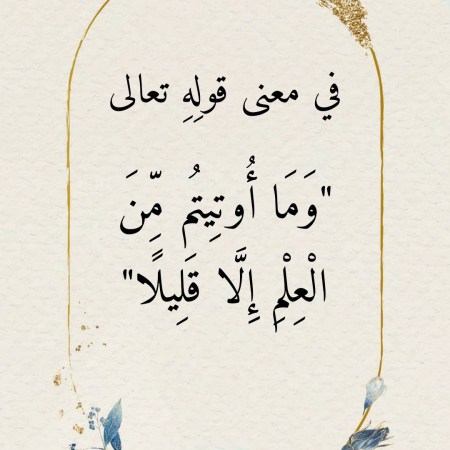 في معنى قولِهِ تعالى
"وَمَا أُوتِيتُم مِّنَ
الْعِلْمِ إِلَّا قَلِيلًا"